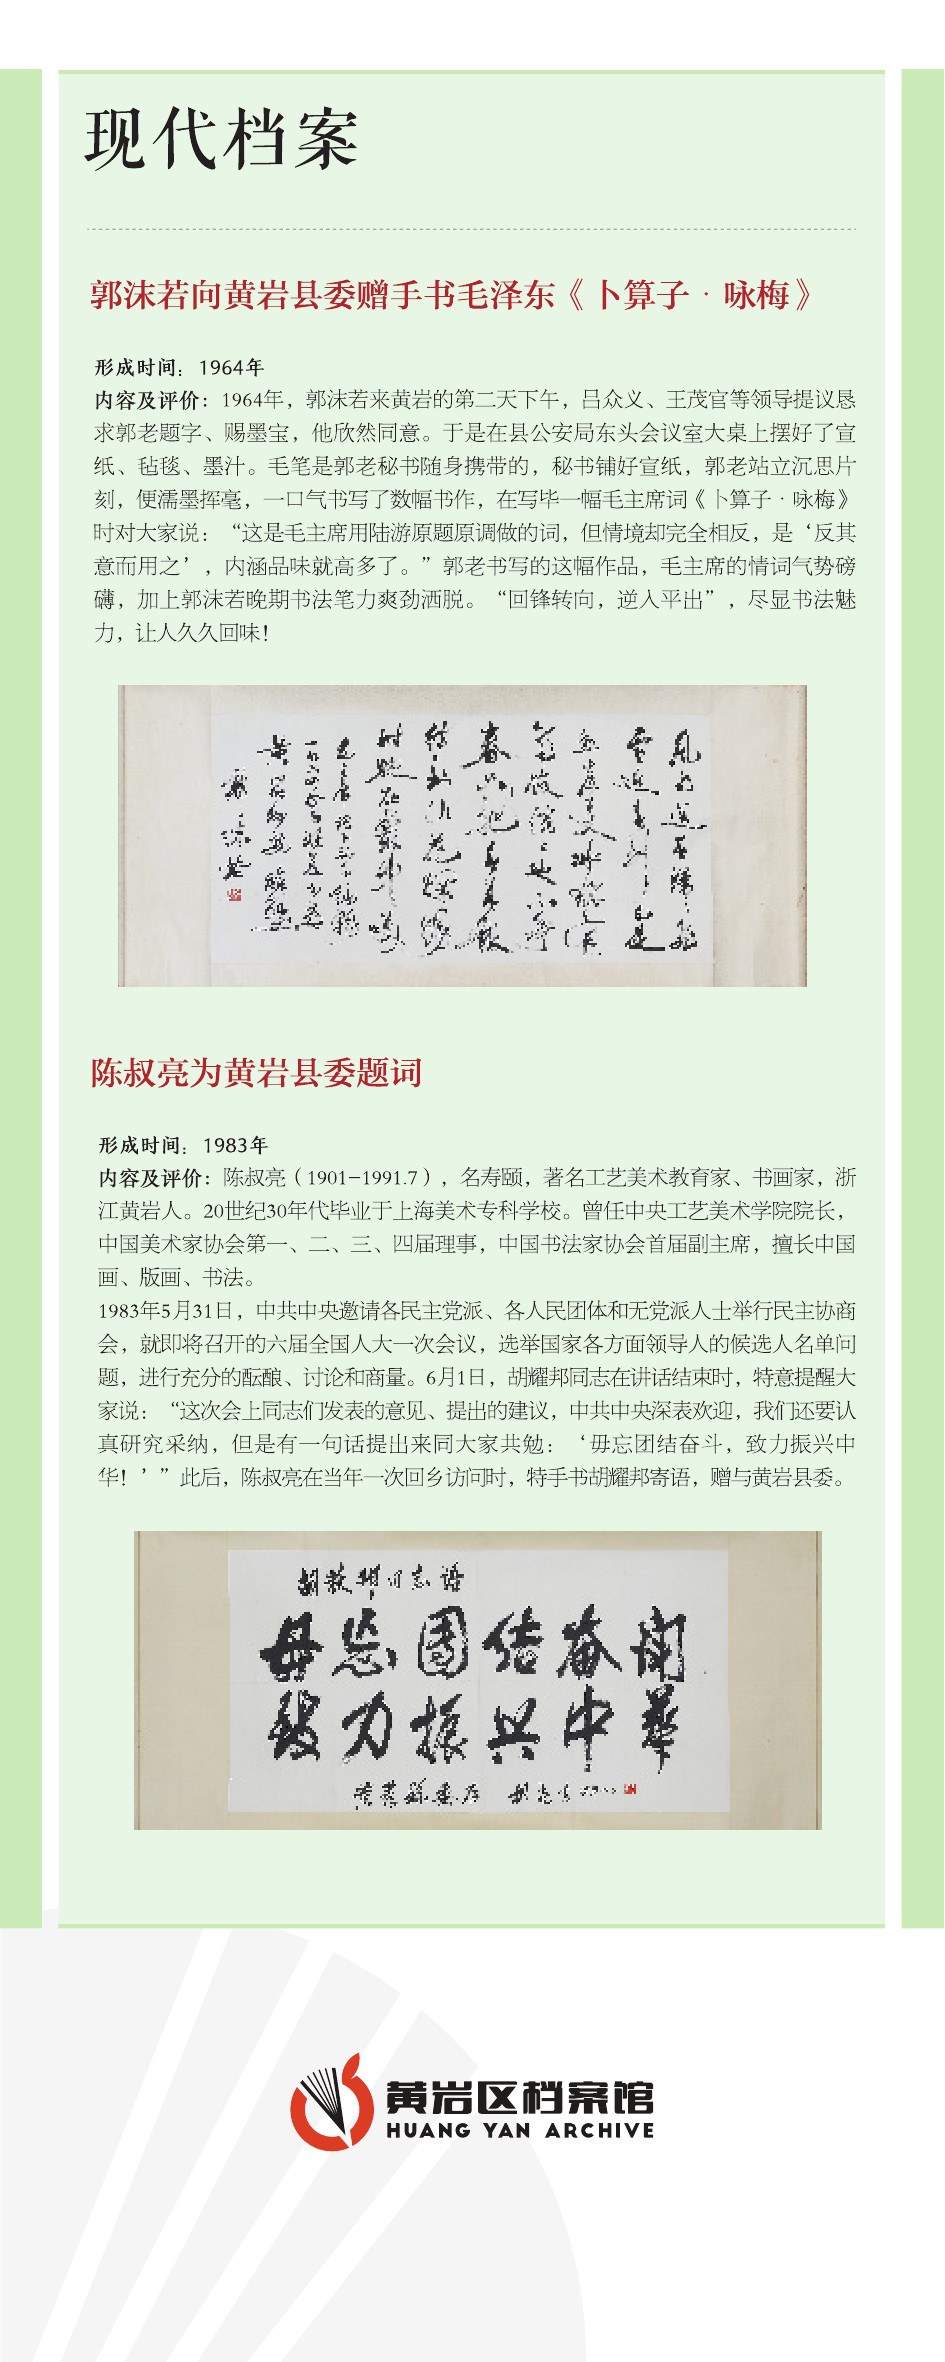 现代档案
郭沫若向黄岩县委赠手书毛泽东《卜算子·咏梅》
形成时间：1964年
内容及评价：1964年，郭沫若来黄岩的第二天下午，吕众义、王茂官等领导提议恳
求郭老题字、赐墨宝，他欣然同意。于是在县公安局东头会议室大桌上摆好了宣
纸、毡毯、墨汁。毛笔是郭老秘书随身携带的，秘书铺好宣纸，郭老站立沉思片
刻，便濡墨挥毫，一口气书写了数幅书作，在写毕一幅毛主席词《卜算子·咏梅》
时对大家说：“这是毛主席用陆游原题原调做的词，但情境却完全相反，是‘反其
意而用之’，内涵品味就高多了。”郭老书写的这幅作品，毛主席的情词气势磅
礴，加上郭沫若晚期书法笔力爽劲洒脱。“回锋转向，逆入平出”，尽显书法魅
力，让人久久回味！
陈叔亮为黄岩县委题词
形成时间：1983年
内容及评价：陈叔亮（1901-1991.7），名寿颐，著名工艺美术教育家、书画家，浙
江黄岩人。20世纪30年代毕业于上海美术专科学校。曾任中央工艺美术学院院长，
中国美术家协会第一、二、三、四届理事，中国书法家协会首届副主席，擅长中国
画、版画、书法。
1983年5月31日，中共中央邀请各民主党派、各人民团体和无党派人士举行民主协商
会，就即将召开的六届全国人大一次会议，选举国家各方面领导人的候选人名单问
题，进行充分的酝酿、讨论和商量。6月1日，胡耀邦同志在讲话结束时，特意提醒大
家说：“这次会上同志们发表的意见、提出的建议，中共中央深表欢迎，我们还要认
真研究采纳，但是有一句话提出来同大家共勉：‘毋忘团结奋斗，致力振兴中
华！’”此后，陈叔亮在当年一次回乡访问时，特手书胡耀邦寄语，赠与黄岩县委。
胡耀邦同志语
毋忘团结奋斗
致力振兴中华
黄岩区档案馆
HUANG YAN ARCHIVE